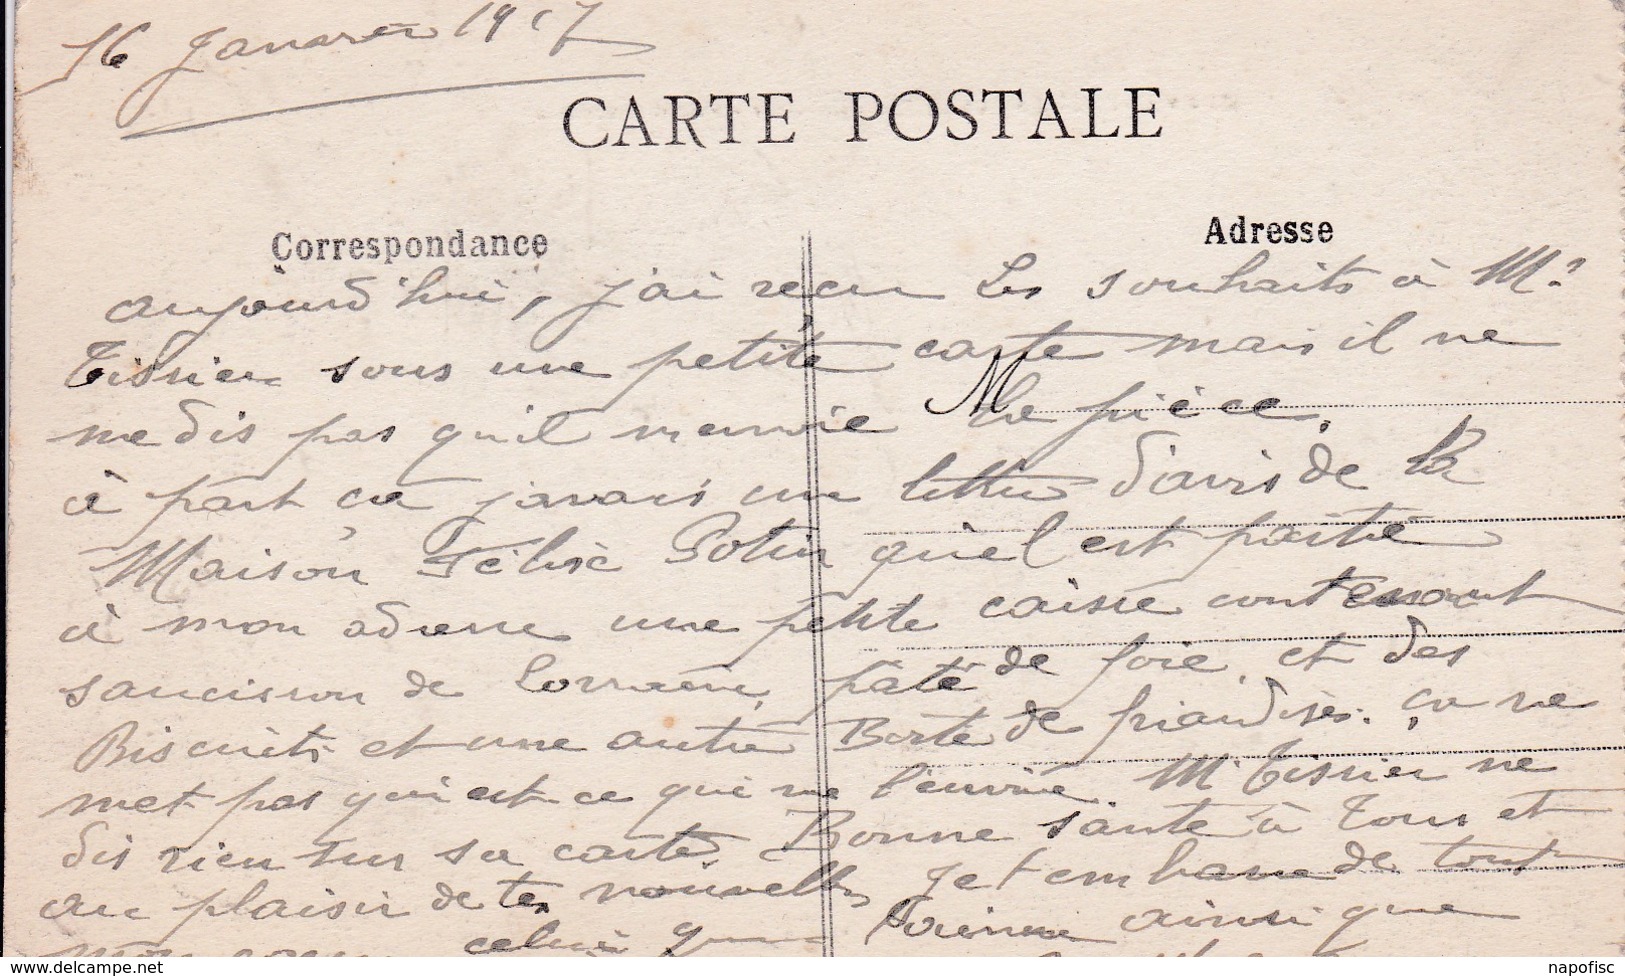 16 Janvier 1917
CARTE POSTALE
Correspondance
Adresse
aujourd'hui, j'ai reçu les souhaits à Mr
Tissier sous une petite carte mais il ne
me dis pas qu'il m'envoie la pièce.
à part ca j'avais un lettre d'avis de la
Maison Félix Potin qu'el est partie
à mon adresse une petite caisse contenant
saucisson de Lorraine, paté de foie et des
Biscuits et une autre Boite de friandises. ça ne
met pas qui est ce qui me l'envoie. Mr Tissier ne
dis rien sur sa carte. Bonne santé à Tous et
au plaisir de tes nouvelles Je t embrasse de tout
mon coeur celui qui ainsi que
napofisc